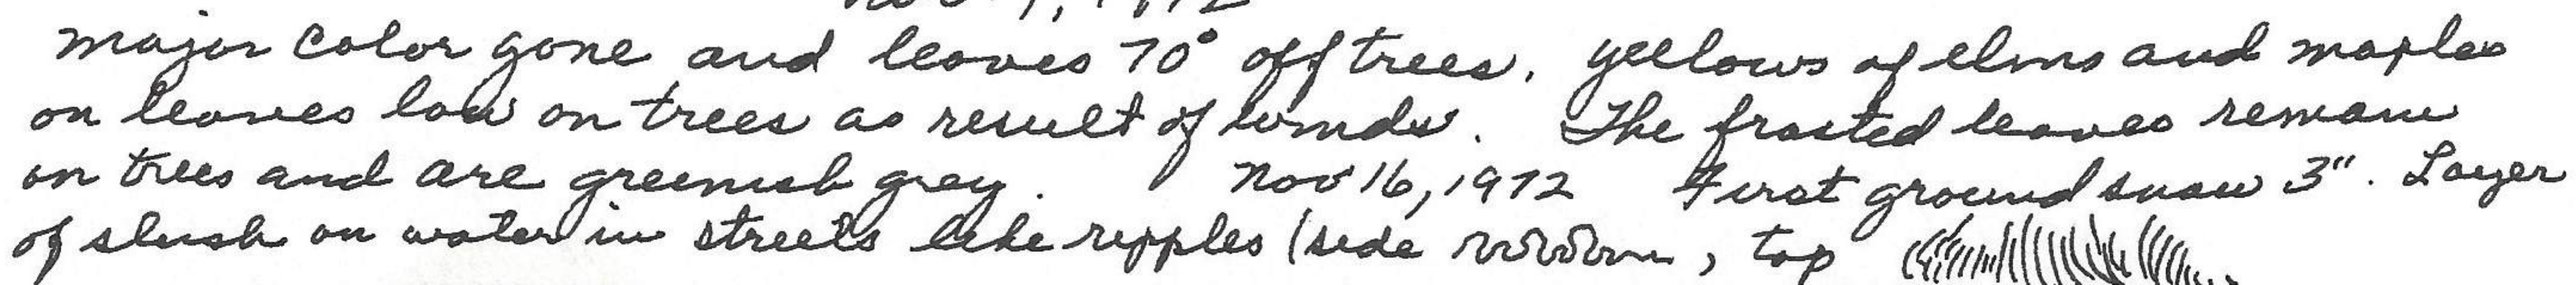 major color gone and leaves 70° off trees. yellows of elms and maples
on leaves low on trees as result of winds. The frosted leaves remain
on trees and are greenish grey. Nov 16, 1972 First ground snow 3". Layer
of slush on water in streets like ripples (side , top